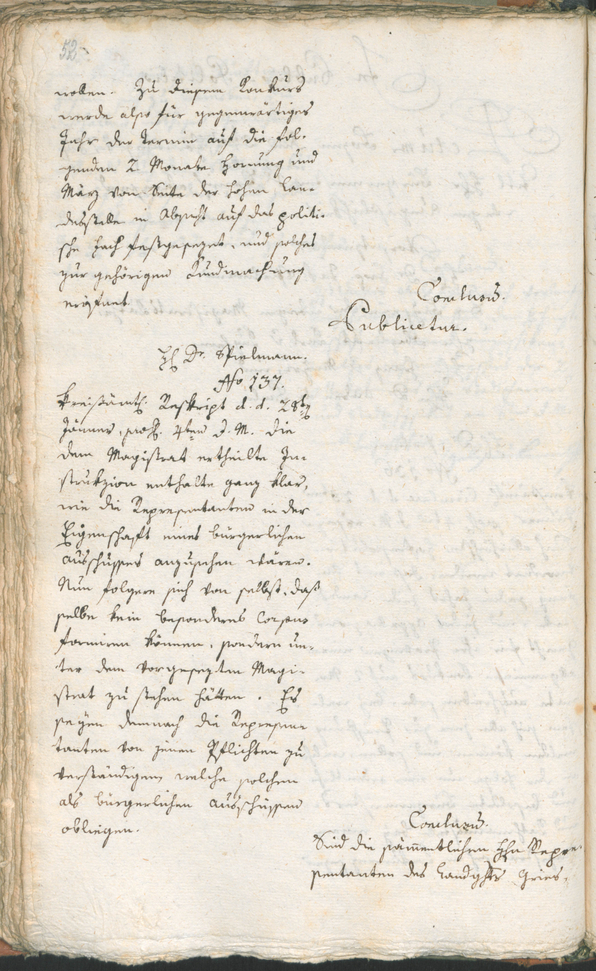 52
woben. Zu diesem Konkurs
werde also für gegenwärtiges
Jahr der Termin auf die fol-
genden 2 Monate Hornung und
März von Seite der hohen Lan-
desstelle in Absicht auf das politi-
sche Fach festgesezet, und solches
zur gehörigen Kundmachung
eröfnet.
Conclusum.
Publicetur.
H. Dr. Spielmann.
No 137.
Kreisämtl. Reskript d. d. 28ten
Jänner, 4ten d. M. Die
dem Magistrat ertheilte In-
strukzion enthalte ganz klar,
wie die Representanten in der
Eigenschaft eines bürgerlichen
Ausschusses anzusehen wären.
Nun folgere sich von selbst, daß
selbe kein besonderes Corpus
formiren können, sondern un-
ter dem vorgesezten Magi-
strat zu stehen hätten. Es
seyen demnach die Represen-
tanten von jenen Pflichten zu
verständigen, welche solchen
als bürgerlichen Ausschüssen
obliegen.
Conclusum.
Sind die sämentlichen Hhn Repre-
sentanten des Landghts Gries,